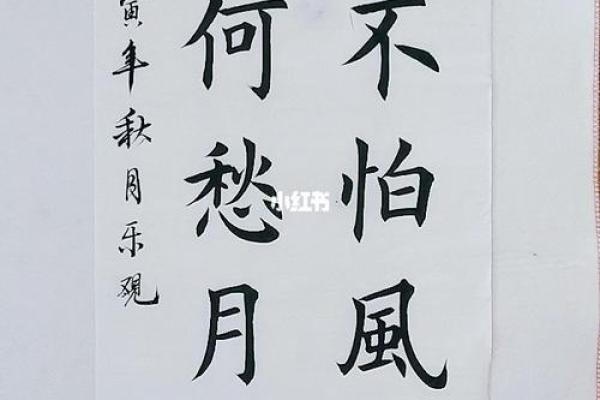 不怕風
何愁月
寅年秋月乐觀
小红书